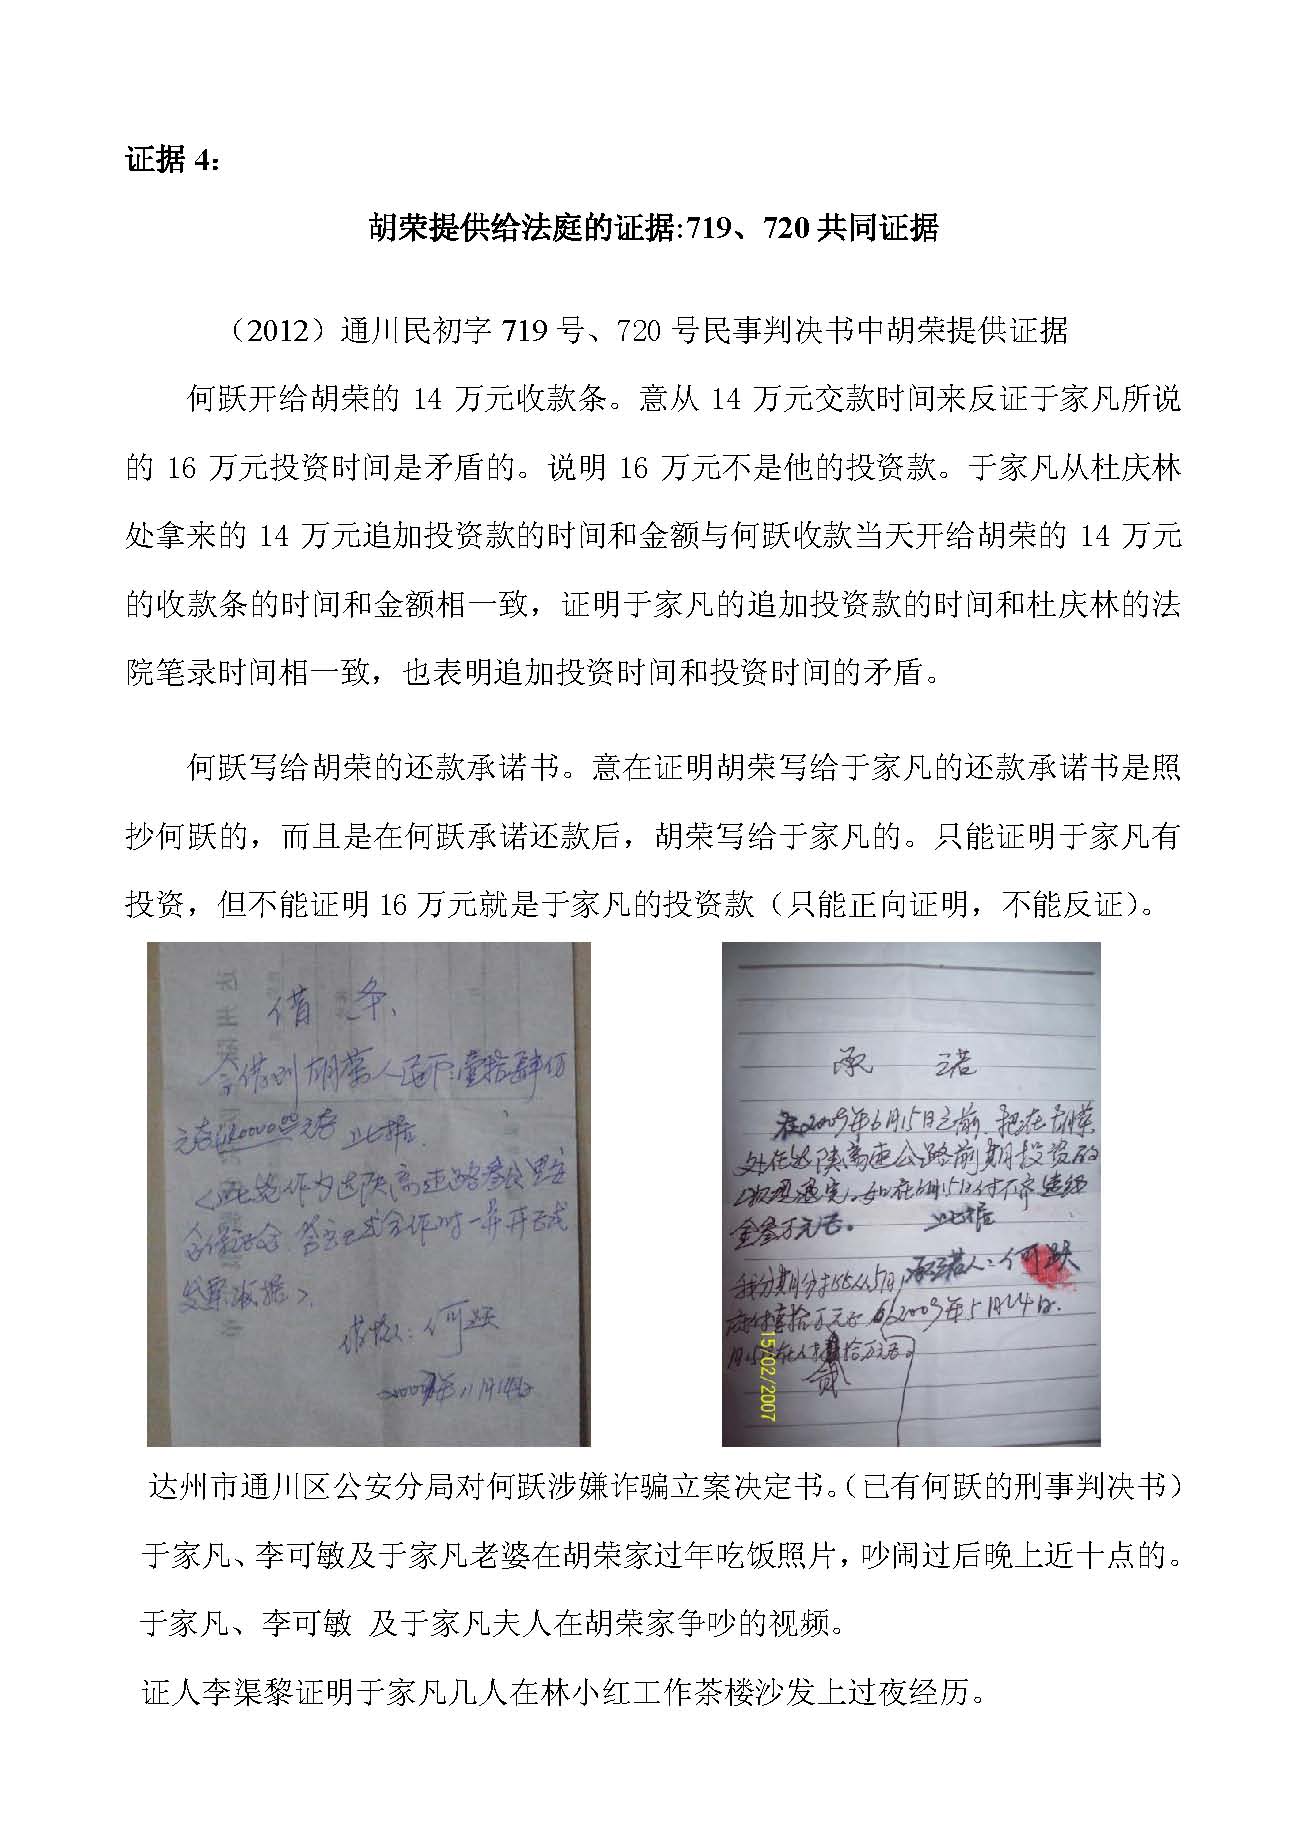 证据 4：
胡荣提供给法庭的证据:719、720 共同证据
（2012）通川民初字 719 号、720 号民事判决书中胡荣提供证据
何跃开给胡荣的 14 万元收款条。意从 14 万元交款时间来反证于家凡所说
的 16 万元投资时间是矛盾的。说明 16 万元不是他的投资款。于家凡从杜庆林
处拿来的 14 万元追加投资款的时间和金额与何跃收款当天开给胡荣的 14 万元
的收款条的时间和金额相一致，证明于家凡的追加投资款的时间和杜庆林的法
院笔录时间相一致，也表明追加投资时间和投资时间的矛盾。
何跃写给胡荣的还款承诺书。意在证明胡荣写给于家凡的还款承诺书是照
抄何跃的，而且是在何跃承诺还款后，胡荣写给于家凡的。只能证明于家凡有
投资，但不能证明 16 万元就是于家凡的投资款（只能正向证明，不能反证）。
借 条
今借到胡荣人民币：壹拾肆万
元石 元石 此据
此笔作为达陕高速路
合保证金
发票收据
借款人：何跃
年11月14日
承 诺
在2009年6月15日之前，把在胡荣
处在达陕高速公路前期投资的
在6月15日付不齐违约
金叁万元石。 此据
承诺人：何跃
2009年5月24日.
贰
15/02/2007
达州市通川区公安分局对何跃涉嫌诈骗立案决定书。（已有何跃的刑事判决书）
于家凡、李可敏及于家凡老婆在胡荣家过年吃饭照片，吵闹过后晚上近十点的。
于家凡、李可敏 及于家凡夫人在胡荣家争吵的视频。
证人李渠黎证明于家凡几人在林小红工作茶楼沙发上过夜经历。